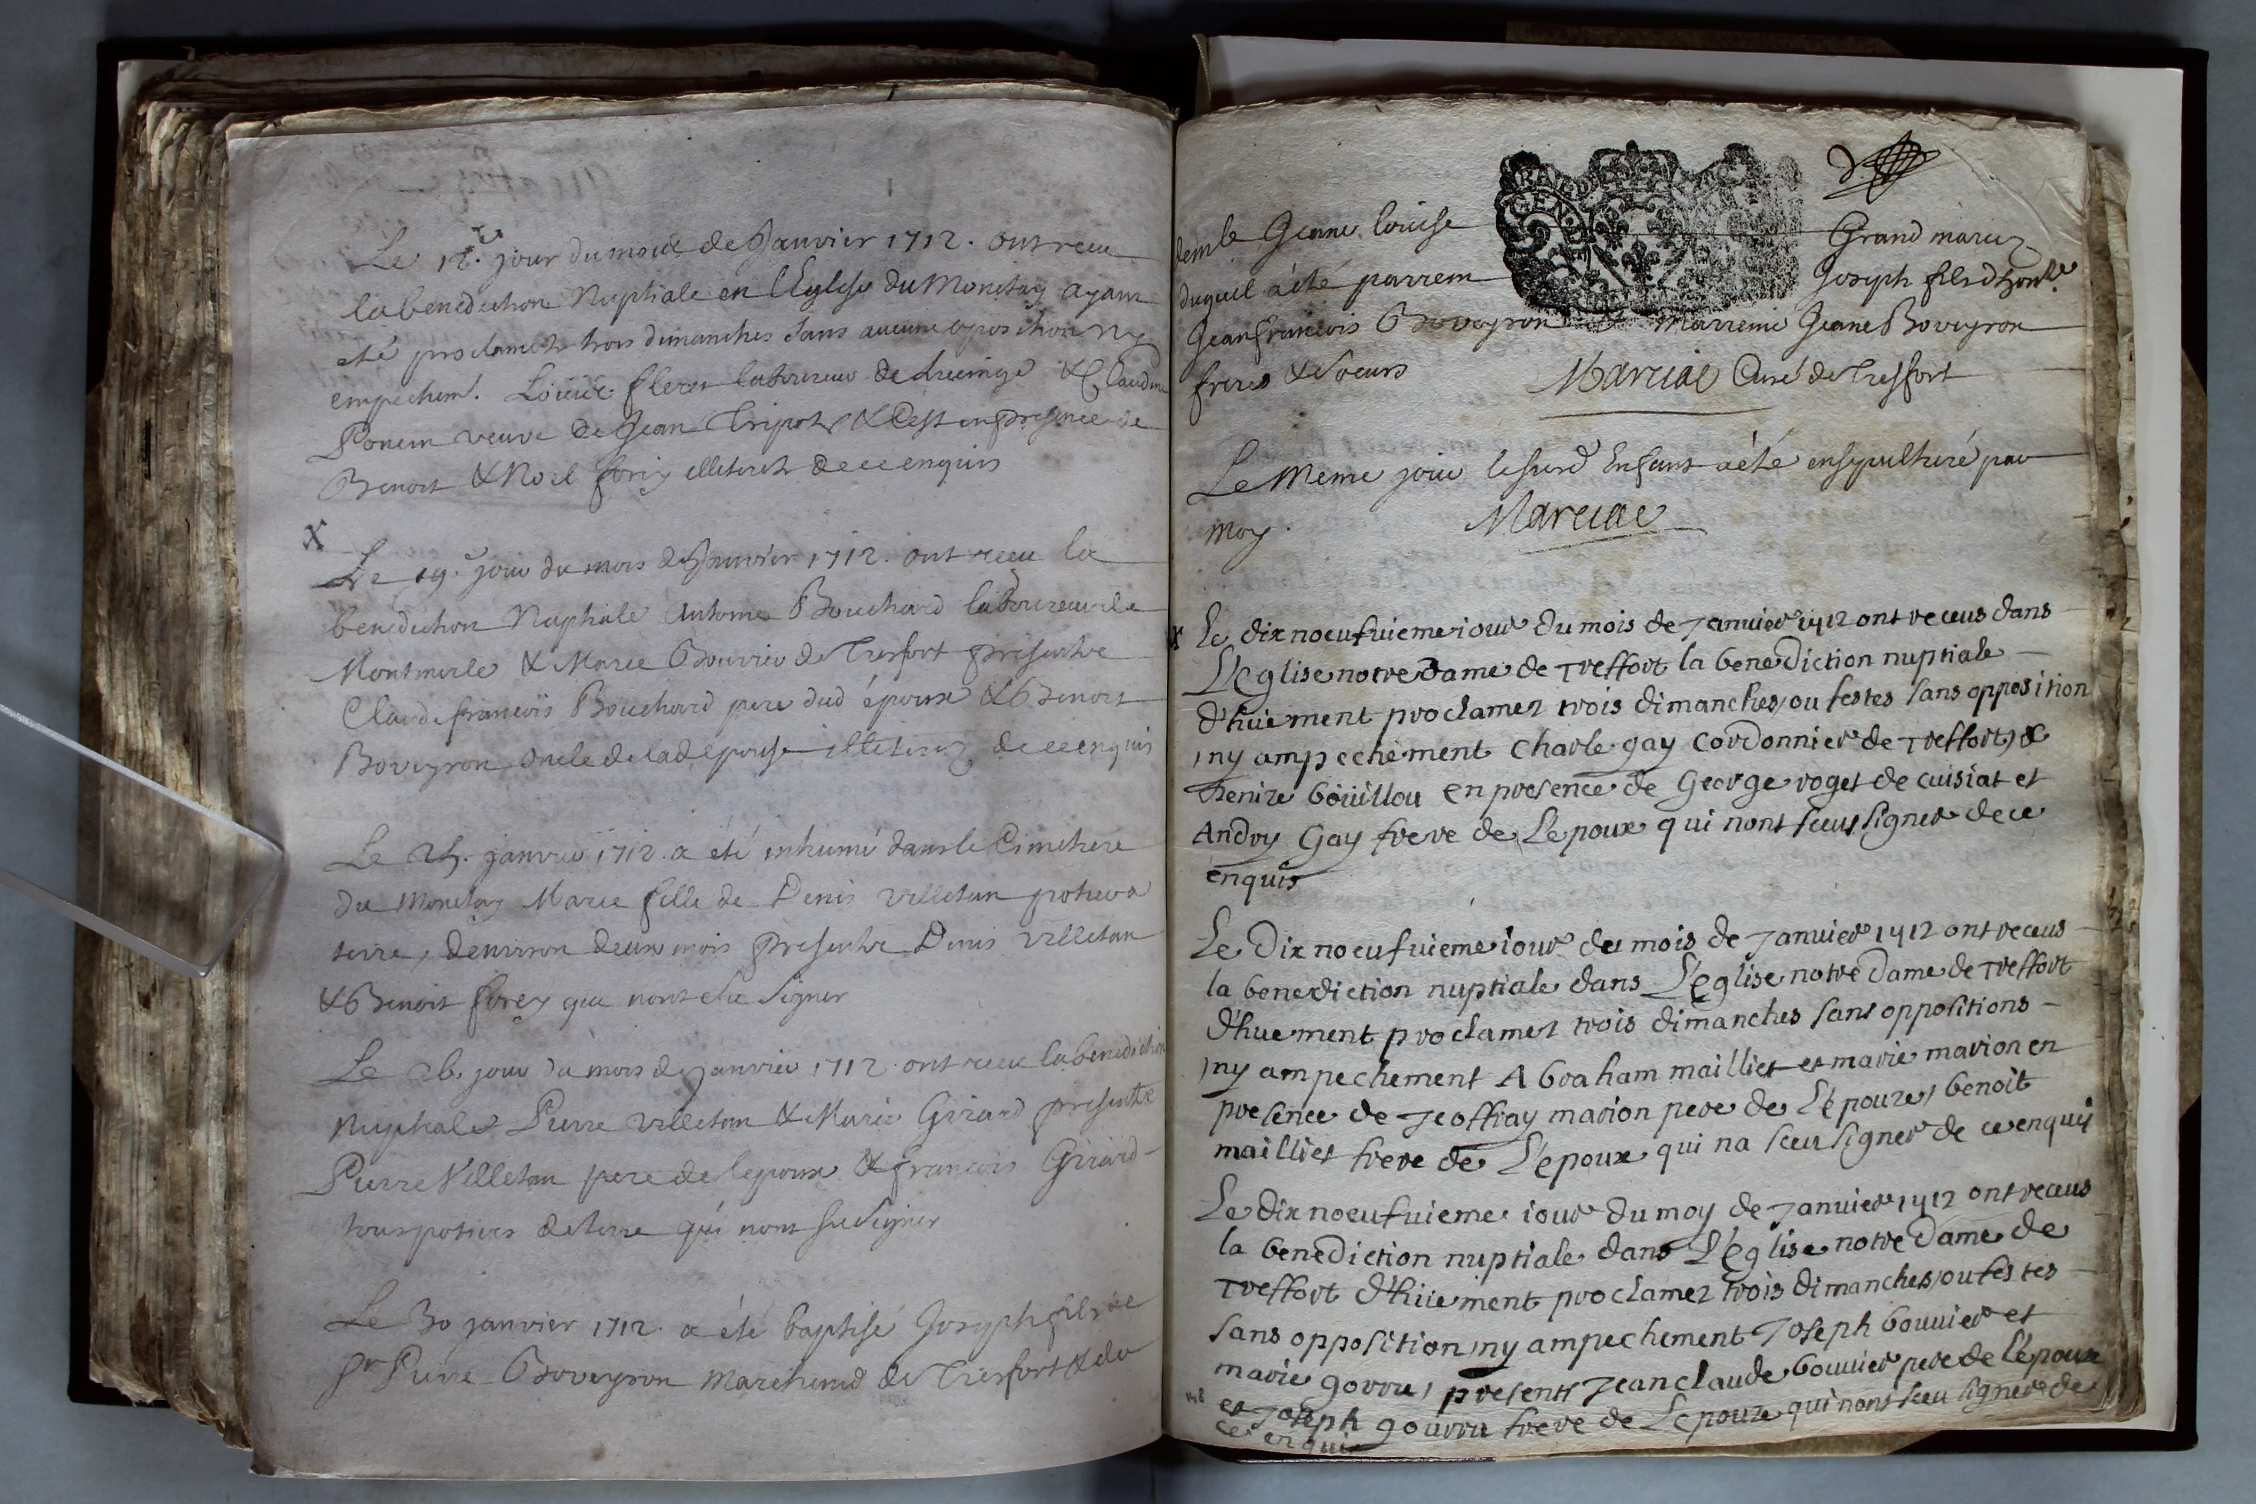 Le 12.e jour du mois de Janvier 1712. ont receu
la benediction Nuptiale en l'Eglise du Monetay ayant
eté proclamets trois dimanches sans aucune oposition ny
empechem.t Loüis fleret laboureur de & Claudine
Ponein veuve de Jean Tripoz & C'est en presence de
Benoit & Noel forey illeterets de ce enquis
X
Le 19.e jour du mois de Janvier 1712. ont receu la
benediction Nuptiale Antoine Bouchard laboureur de
Montmerle & Marie Bouvier de Tresfort presents
Claude francois Bouchard pere dud époux & Benoit
Boveyron oncle de lad epouse illeterez de ce enquis
Le 25. janvier 1712. a été inhumé dans le Cimetiere
du Monetay Marie fille de Denis villetan potier a
terre, d'environ deux mois presents Denis villetan
& Benoit forey qui nont seu signer
Le 26. jour du mois de janvier 1712. ont receu la benediction
Nuptiale Pierre villetan & Marie Girard presents
Pierre Villetan pere de lepoux & francois Girard
tous potiers de terre qui nont sceu signer
Le 30 janvier 1712. a été baptisé Joseph fils de
Sr Pierre Boveyron Marchand de Tresfort & de
demle Jeane louise Grand
duquel a été parrein Joseph fils d'hon.le
Jean francois Boveyron & Marreine Jeane Boveyron
freres & soeurs Marciac Curé de Tresfort
Le Meme jour le surd Enfant a été ensepulturé par
moy. Marciac
x Le dix noeufvieme iour du mois de Janvier 1712 ont receus dans
L'Eglise notre Dame de Treffort la benediction nuptiale
d'huement proclamez trois dimanches, ou festes sans opposition
ny ampechement Charle gay Cordonnier de Treffort, &
Denize boüillou en presence de George roget de cuisiat et
Andry Gay frere de L'epoux qui nont sceus signer de ce
enquis
Le Dix noeufvieme iour du mois de Janvier 1712 ont receus
la benediction nuptiale dans L'Eglise notre Dame de Treffort
d'huement proclamez trois dimanches sans oppositions
ny ampechement Abraham mailliet et marie marion en
presence de Jeoffray marion pere de L'epouze, benoit
mailliet frere de L'epoux qui na sceu signer de ce enquis
Le dix noeufvieme iour du moy de Janvier 1712 ont receus
la benediction nuptiale dans L'Eglise notre Dame de
Treffort d'hüement proclamez trois dimanches, ou festes
sans opposition, ny ampechement Joseph bouvier et
marie gorru, presents Jean claude bouvier pere de l'epoux
et Joseph gourru frere de L'epouze qui nont sceu signer de
ce enquis